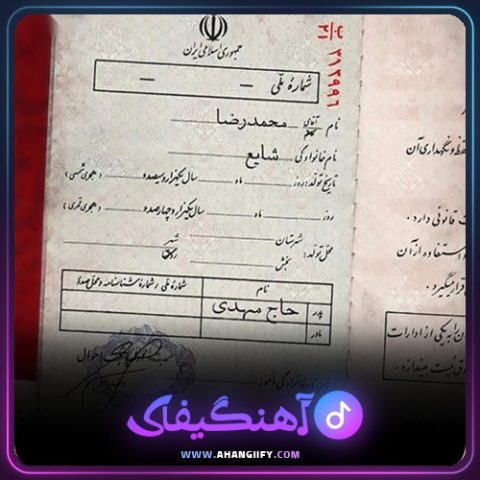 جمهوری اسلامی ایران
شمارهٔ ملی
۳۱۲۹۹۶
نام آقای محمدرضا
نام خانوادگی شایع
تاریخ تولد: روز ماه سال یکهزار و سیصد و (هجری شمسی)
روز ماه سال یکهزار و چهارصد و (هجری قمری)
محل تولد: شهرستان شهر
بخش
نام شماره ملی / شماره شناسنامه و محل صدور
پدر حاج مهدی
مادر
حفظ و نگهداری آن
ت قانونی دارد.
استفاده از آن
قرار میگیرد.
یکی از ادارات
آهنگیفای
WWW.AHANGIIFY.COM